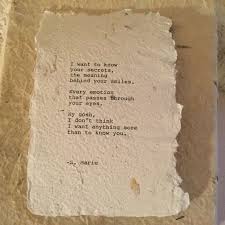 I want to know
your secrets,
the meaning
behind your smiles.
Every emotion
that passes through
your eyes.
My gosh,
I don't think
I want anything more
than to know you.
-S. marie